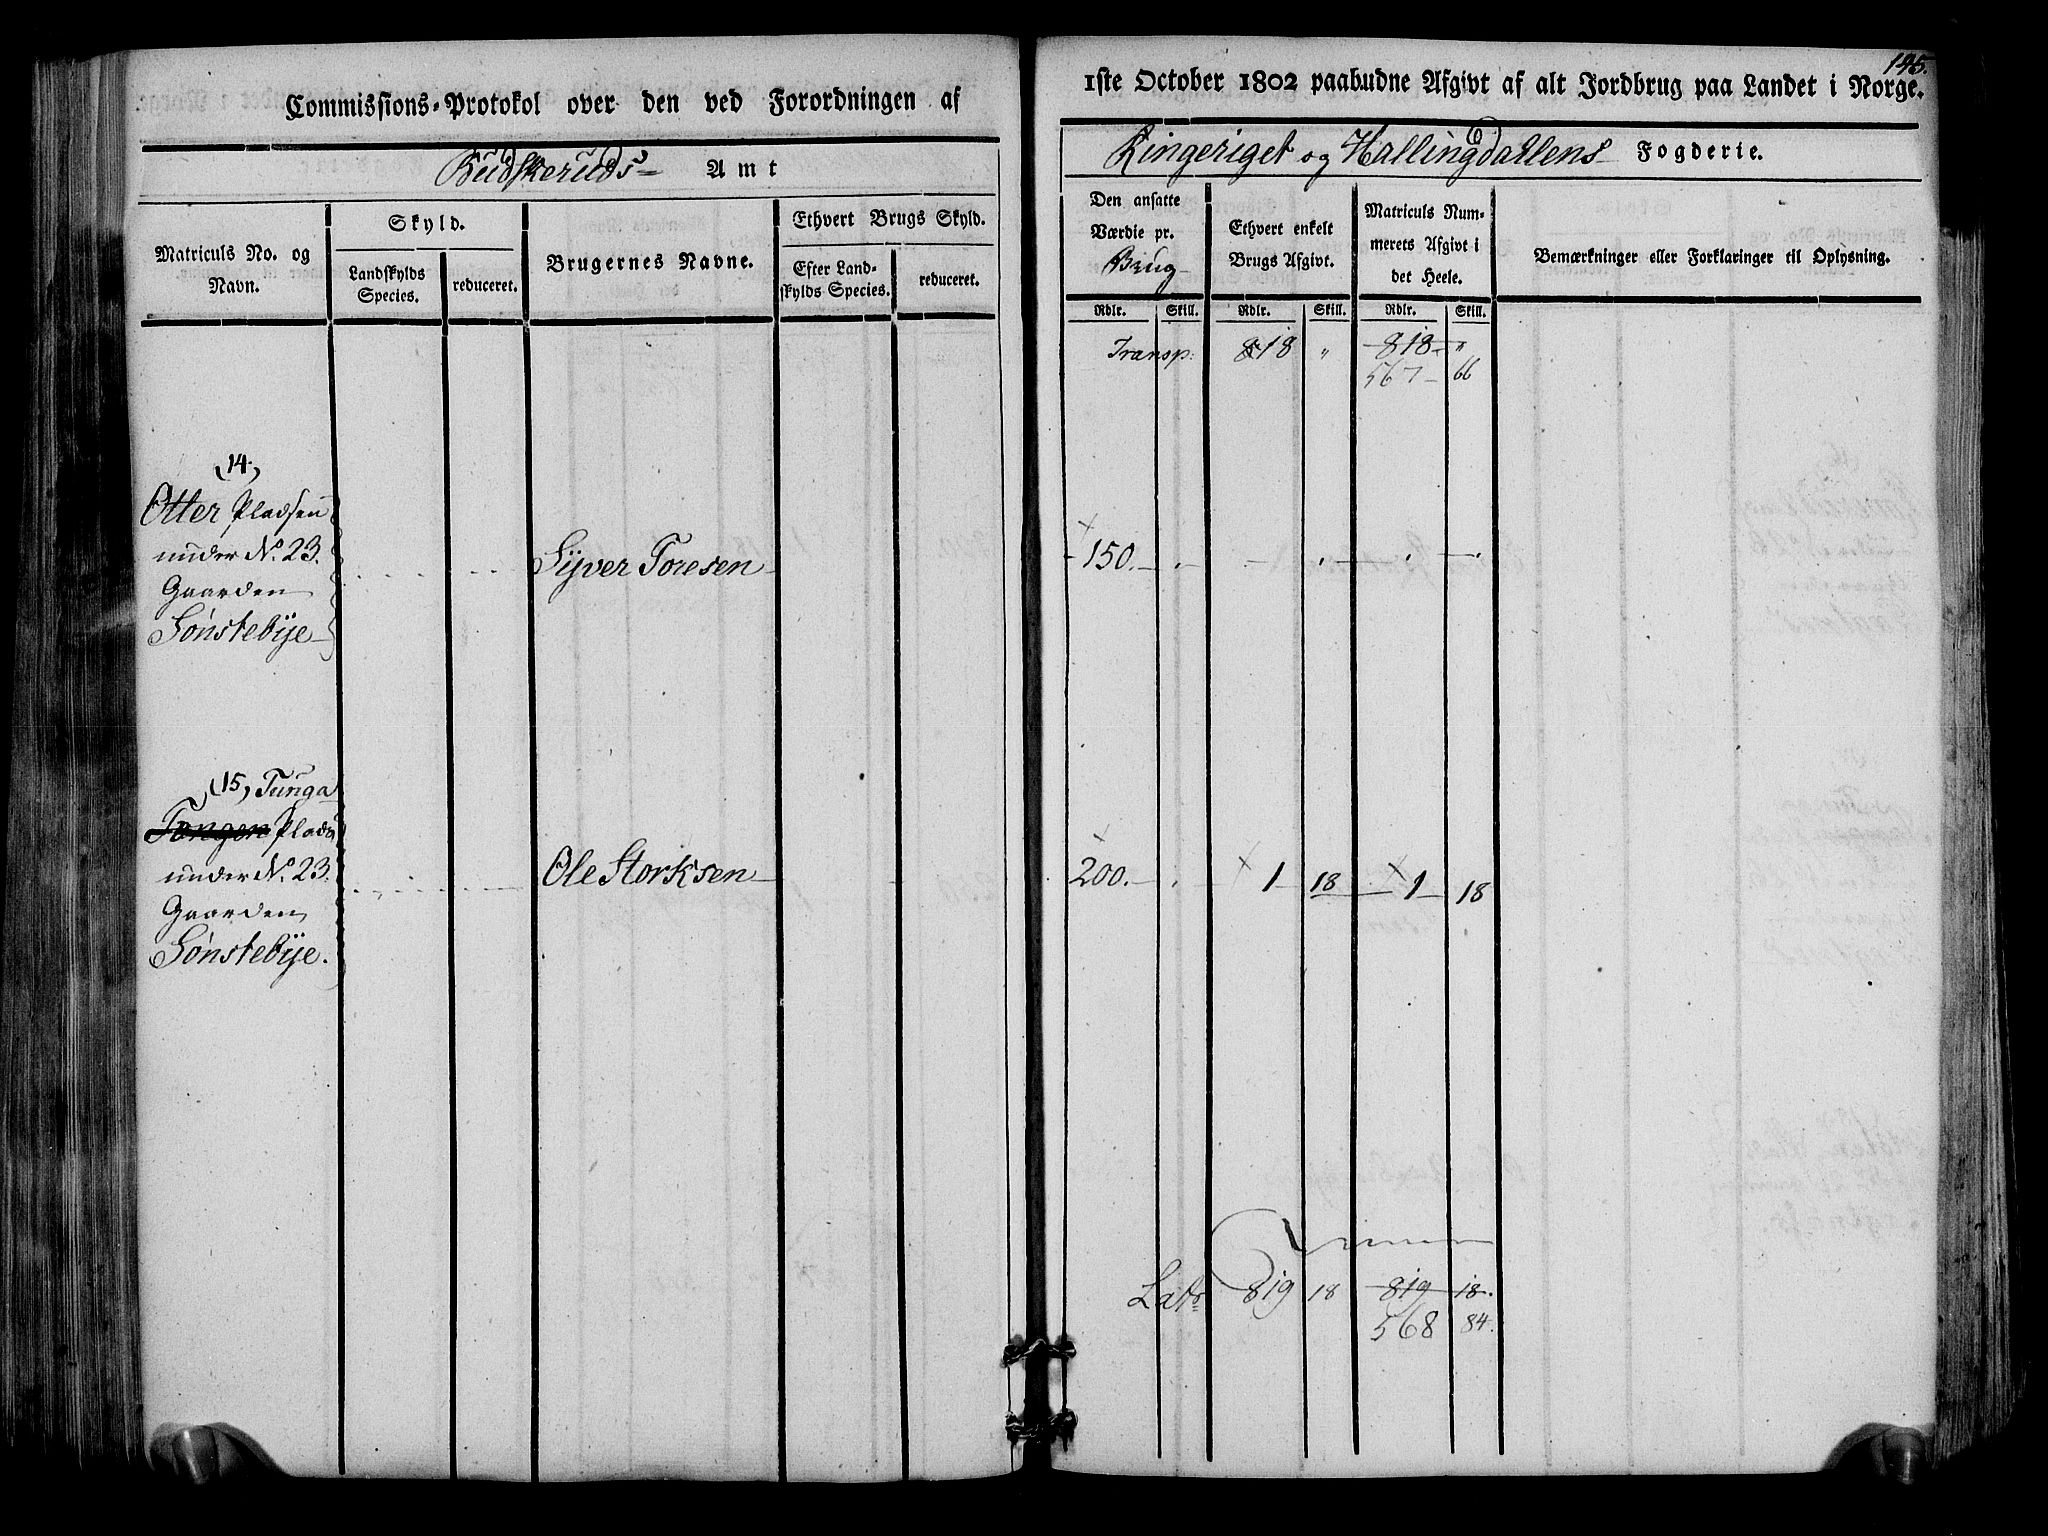 Commissions-Protokol over den ved Forordningen af
Budskeruds Amt
Matriculs No. og Navn.
Skyld.
Landskylds Species.
reduceret.
Brugernes Navne.
Ethvert Brugs Skyld.
Efter Landskylds Species.
reduceret.
14.
Otter Pladsen
under No. 23.
Gaarden
Sönstebÿe
Sÿver Toresen
15, Tunga
Tongen Plads
under No. 23.
Gaarden
Sönstebÿe.
Ole Storksen
145.
1ste October 1802 paabudne Afgivt af alt Jordbrug paa Landet i Norge.
Ringeriget og Hallingdallens Fogderie.
Den ansatte Værdie pr.
Brug
Rdlr. Skill.
Ethvert enkelt Brugs Afgivt.
Rdlr. Skill.
Matriculs Nummerets Afgivt i det Heele.
Rdlr. Skill.
Bemærkninger eller Forklaringer til Oplysning.
Transp: 818 " 818 "
567 66
150.
200. 1 18 1 18
Lats 819 18 819 18.
568 84.